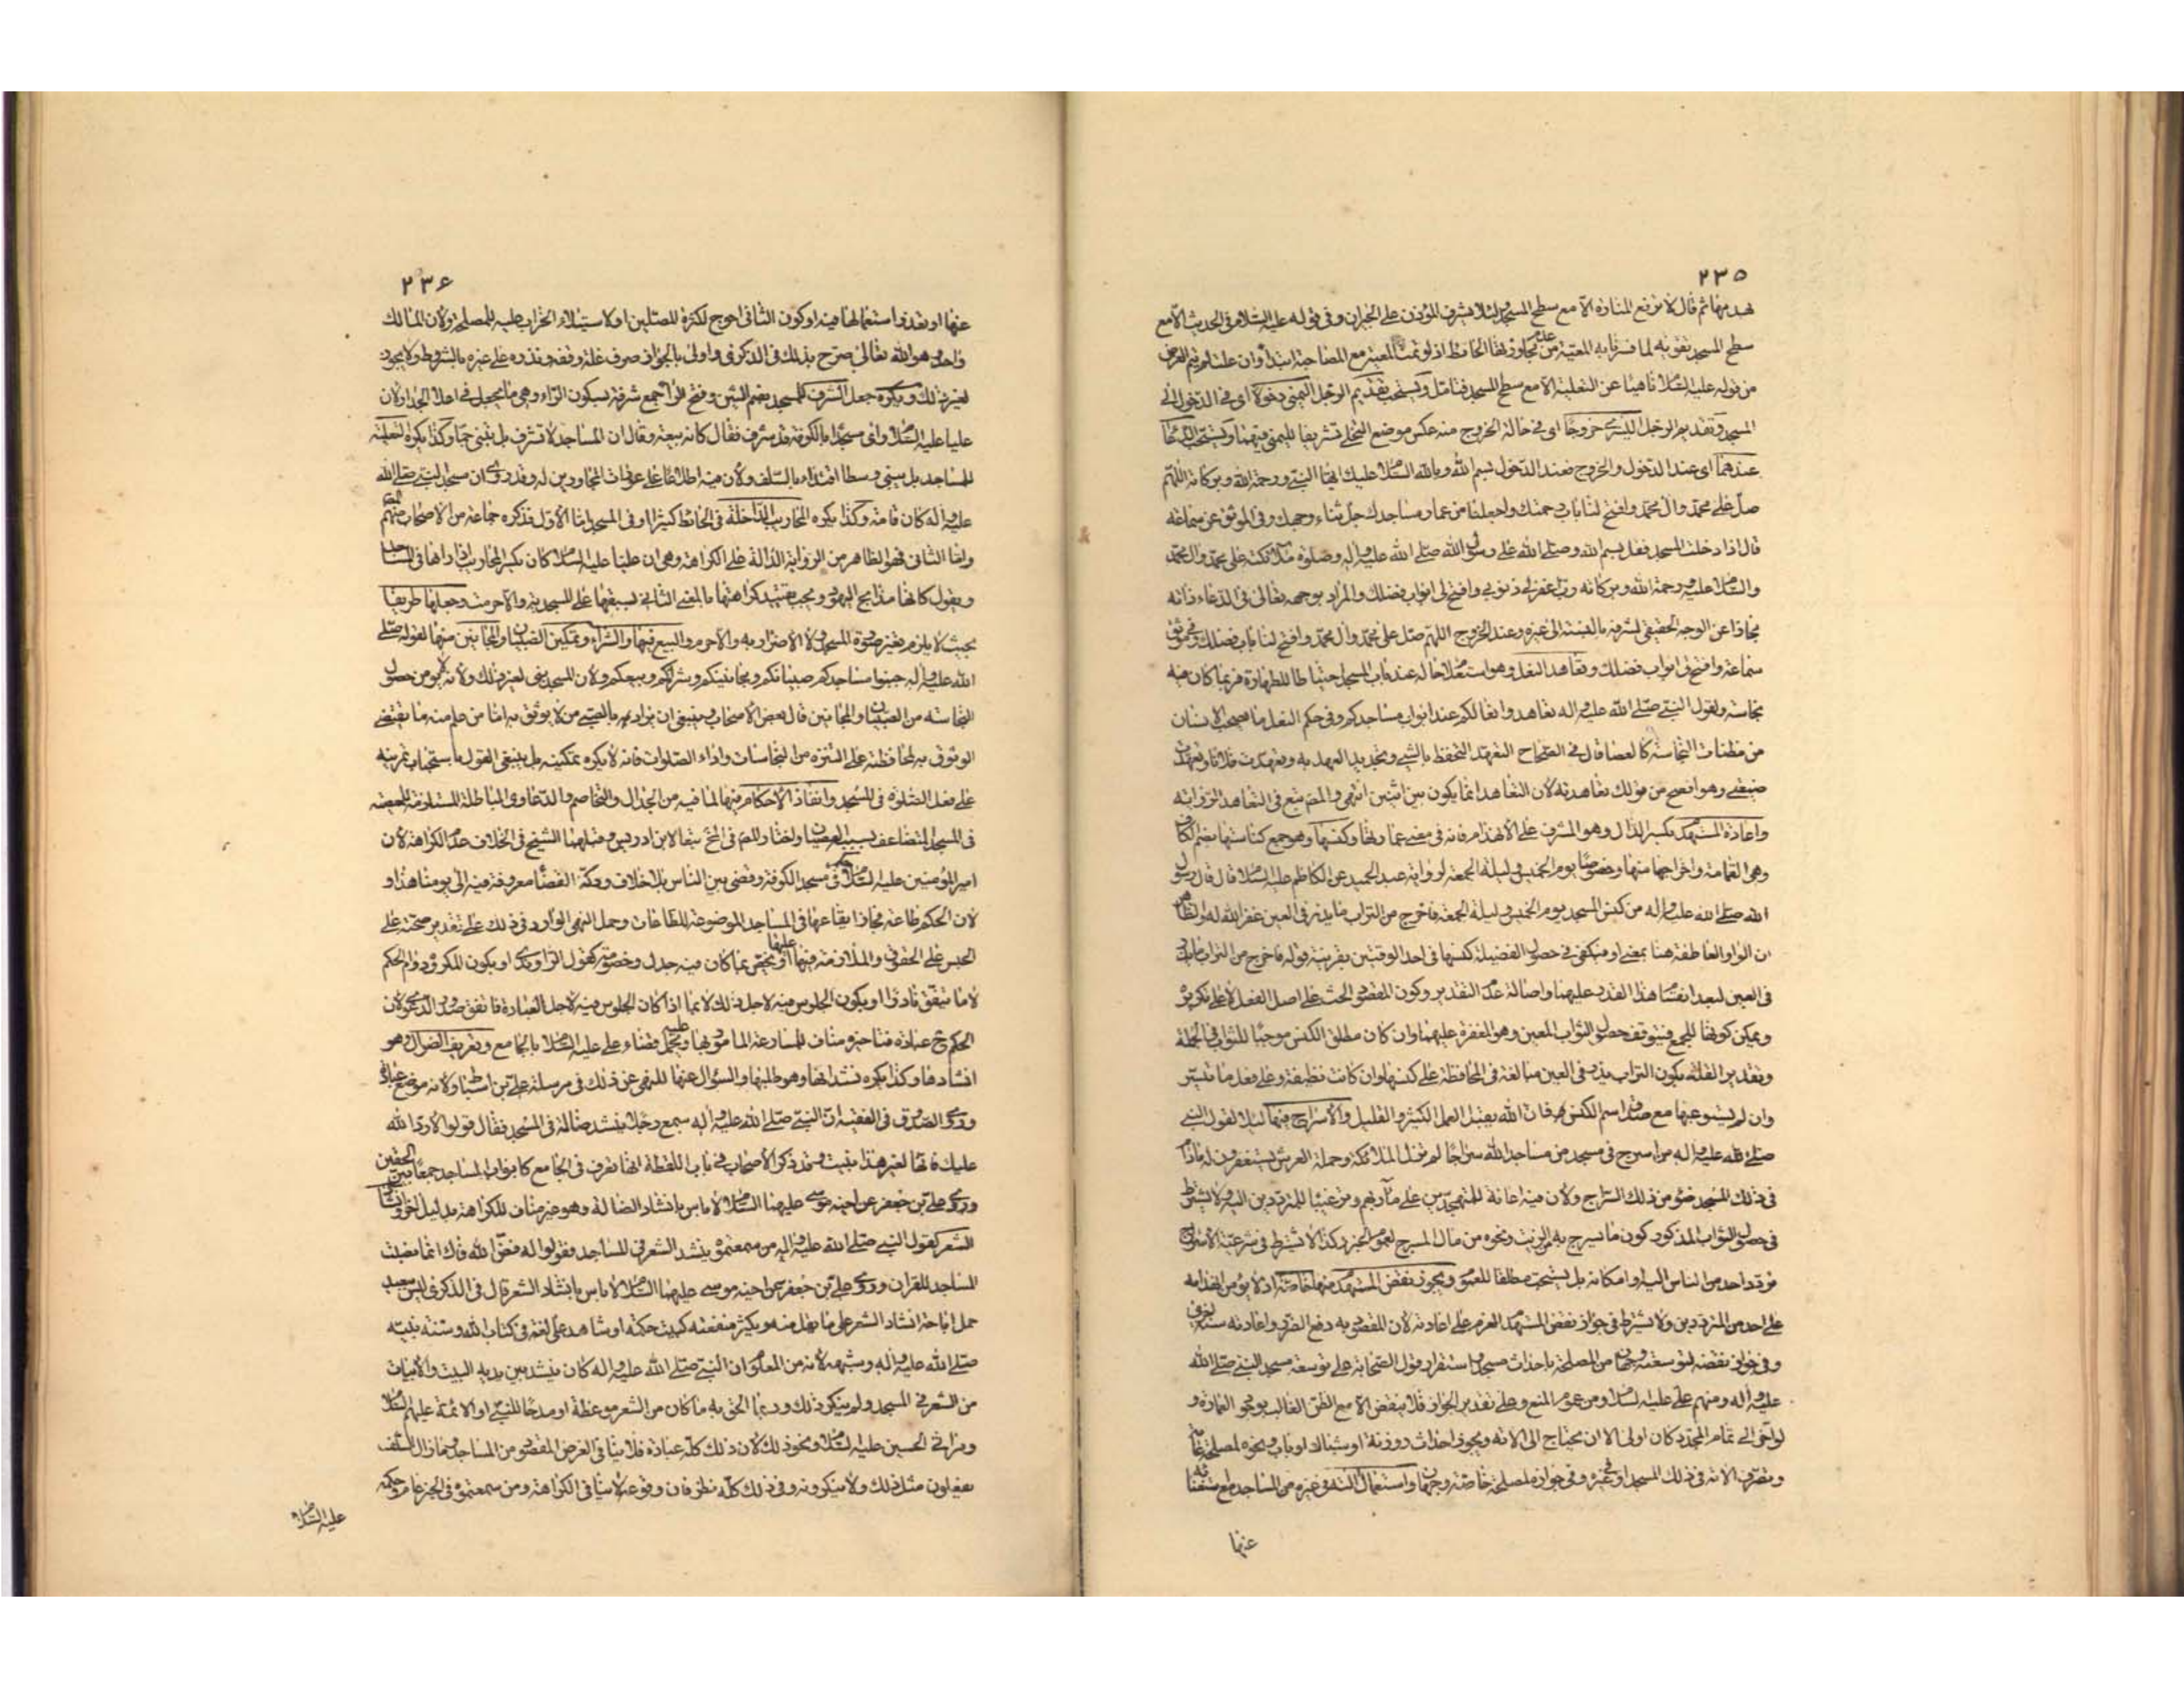 ٢٣٥
بهدمها ثم قال لا ترفع المنارة الا مع سطح المسجد لئلا يشرف المؤذن على الجيران وفي قوله عليه السلام في الحديث الا مع
سطح المسجد تقوية لما فسرنا به المعية من علم تجاوزها الحائط اذ لو تمت المعية مع المصاحبة ابتداء وان علت لم يتم الغرض
من قوله عليه السلام ناهيا عن التعلية الا مع سطح المسجد فتامل ويستحب تقديم الرجل اليمنى دخولا اى في الدخول الى
المسجد وتقديم الرجل اليسرى خروجا اى في حالة الخروج منه عكس موضع التخلى تشريفا لليمنى فيهما ويستحب الدعاء
عندهما اى عند الدخول والخروج فعند الدخول بسم الله وبالله السلام عليك ايها النبي ورحمة الله وبركاته اللهم
صل على محمد وال محمد وافتح لنا باب رحمتك واجعلنا من عمار مساجدك جل ثناء وجهك وفي الموثق عن سماعة
قال اذا دخلت المسجد فقل بسم الله وصلى الله على رسول الله صلى الله عليه واله وصلوة ملائكته على محمد وال محمد
والسلام عليه ورحمة الله وبركاته رب اغفر لي ذنوبي وافتح لى ابواب فضلك والمراد بوجهه تعالى في الدعاء ذاته
مجازا عن الوجه الحقيقي لشرفه بالنسبة الى غيره وعند الخروج اللهم صل على محمد وال محمد وافتح لنا باب فضلك وفي موثق
سماعة وافتح لى ابواب فضلك وتعاهد النعل وهو استعلام حاله عند باب المسجد احتياطا للطهارة فربما كان فيه
نجاسة ولقول النبي صلى الله عليه واله تعاهدوا نعالكم عند ابواب مساجدكم وفي حكم النعل ما يصحب الانسان
من مظنات النجاسة كالعصا قال في الصحاح التعهد التحفظ بالشيء وتجديد العهد به وتعهدت فلانا وتعهدت
ضيعتى وهو افصح من قولك تعاهدته لان التعاهد انما يكون بين اثنين انتهى والمص تبع في التعاهد الرواية
واعادة المستهدم بكسر الدال وهو المشرف على الانهدام فانه في معنى عمارتها وكنسها وهو جمع كناستها بضم الكاف
وهي القمامة واخراجها منها وخصوصا يوم الخميس وليلة الجمعة لرواية عبد الحميد عن الكاظم عليه السلام قال قال رسول
الله صلى الله عليه واله من كنس المسجد يوم الخميس وليلة الجمعة فاخرج من التراب ما يذر في العين غفر الله له والظاهر
ان الواو العاطفة هنا بمعنى او فيكفى في حصول الفضيلة كنسها في احد الوقتين بقرينة قوله فاخرج من التراب ما يذر
في العين لبعد انقسام هذا القدر عليهما واصالة عدم التقدير وكون المقصود الحث على اصل الفعل لا على تكريره
ويمكن كونها للجمع فيتوقف حصول الثواب المعين وهو المغفرة عليهما وان كان مطلق الكنس موجبا للثواب في الجملة
وتقدير القلة بكون التراب يذر في العين مبالغة في المحافظة على كنسها وان كانت نظيفة وعلى فعل ما تيسر
وان لم يستوعبها مع صدق اسم الكنس فان الله يقبل العمل الكثير والقليل والاسراج فيها ليلا لقول النبي
صلى الله عليه واله من اسرج في مسجد من مساجد الله سراجا لم تزل الملائكة وحملة العرش يستغفرون له مادام
في ذلك المسجد ضوء من ذلك السراج ولان فيه اعانة للمتهجدين على مآربهم وترغيبا للمترددين اليه ولا يشترط
في حصول الثواب المذكور كون ما يسرج به الزيت ونحوه من مال المسرج لعموم الخبر وكذا لا يشترط في شرعية الاسراج
تردد احد من الناس اليه او امكانه بل يستحب مطلقا للعموم ويجوز نقض المستهدم منها خاصة اذ لا يؤمن انهدامه
على احد من المترددين ولا يشترط في جواز نقض المستهدم العزم على اعادته لان المقصود به دفع الضرر واعادته سنة اخرى
وفي جواز نقضه لتوسعته وجهان من المصلحة باحداث مسجد واستقرار قول الصحابة على توسعة مسجد النبي صلى الله
عليه واله ومنهم على عليه السلام ومن عموم المنع وعلى تقدير الجواز فلا ينقض الا مع الظن الغالب بوجود العمارة و
لو اخر الى تمام المجدد كان اولى الا ان يحتاج الى الاته ويجوز احداث روزنة او شباك او باب ونحوه لمصلحة عامة
وتصرف الاته في ذلك المسجد او في غيره وفي جوازه لمصلحة خاصة وجهان واستعمال الته في غيره من المساجد مع استغنائه
عنها
٢٣٦
عنها او تعذر استعمالها فيه او كون الثاني احوج لكثرة المصلين او لاستيلاء الخراب عليه للمصلحة ولان المالك
واحد وهو الله تعالى صرح بذلك في الذكرى واولى بالجواز صرف غلة وقفه ونذره على غيره بالشروط ولا يجوز
لغير ذلك ويكره جعل الشرف للمسجد بضم الشين وفتح الراء جمع شرفة بسكون الراء وهي ما يجعل في اعلا الجدار لان
عليا عليه السلام راى مسجدا بالكوفة قد شرف فقال كانه بيعة وقال ان المساجد لا تشرف بل تبنى جما وكذا يكره تعلية
المساجد بل تبنى وسطا اقتداء بالسلف ولان فيه اطلاعا على عورات المجاورين له وقد روى ان مسجد النبي صلى الله
عليه واله كان قامة وكذا يكره المحاريب الداخلة في الحائط كثيرا او في المسجد اما الاول فذكره جماعة من الاصحاب منهم المص
واما الثاني فهو الظاهر من الرواية الدالة على الكراهة وهى ان عليا عليه السلام كان يكسر المحاريب اذا راها في المساجد
ويقول كانها مذابح اليهود ويجب تقييد كراهتها بالمعنى الثاني بسبقها على المسجدية والا حرمت وجعلها طريقا
بحيث لا يلزم تغير صورة المسجد ولا الاضرار به والا حرم والبيع فيها والشراء وتمكين الصبيان والمجانين منها لقوله صلى
الله عليه واله جنبوا مساجدكم صبيانكم ومجانينكم وشراكم وبيعكم ولان المسجد بنى لغير ذلك ولانه لا يؤمن حصول
النجاسة من الصبيان والمجانين قال بعض الاصحاب وينبغي ان يراد به بالصبي من لا يوثق به اما من علم منه ما يقتضى
الوثوق به لمحافظته على التنزه من النجاسات واداء الصلوات فانه لا يكره تمكينه بل ينبغي القول باستحباب تمرينه
على فعل الصلوة في المسجد وانفاذ الاحكام فيها لما فيه من الجدال والتخاصم والدعاوى الباطلة المستلزمة للمعصية
في المسجد المتضاعف بسببه العصيان ولخفاء والمص في المخ تبعا لابن ادريس وقبلهما الشيخ في الخلاف عدم الكراهة لان
امير المؤمنين عليه السلام حكم في مسجد الكوفة وقضى بين الناس بلا خلاف ودكة القضاء معروفة فيه الى يومنا هذا و
لان الحكم طاعة فجاز ايقاعها في المساجد الموضوعة للطاعات وحمل النهى الوارد في ذلك على تقدير صحته على
الحبس على الحقوق والملازمة فيها عليها او يختص بما كان فيه جدل وخصومة كقول الراوندى او بكون المكروه دوام الحكم
لا ما يتفق نادرا او بكون الجلوس فيه لاجل ذلك لا بما اذا كان الجلوس فيه لاجل العبادة فاتفق صدور الدعوى لان
الحكم ح عبادة فتاخيره مناف للمسارعة المامور بها ويحمل عليه قضاء على عليه السلام بالجامع وتعريف الضوال وهو
انشادها وكذا يكره نشدانها وهو طلبها والسؤال عنها للنهى عن ذلك في مرسلة على بن اسباط ولانه موضع عبادة
وروى الصدوق في الفقيه ان النبي صلى الله عليه واله سمع رجلا ينشد ضالة في المسجد فقال قولوا لا رد الله
عليك فانها لغير هذا بنيت وقد ذكر الاصحاب في باب اللقطة انها تعرف في المجامع كابواب المساجد جمعا بين الحقين
وروى على بن جعفر عن اخيه موسى عليهما السلام لا باس بانشاد الضالة وهو غير مناف للكراهة بدليل اخر وانشاد
الشعر لقول النبي صلى الله عليه واله من سمعتموه ينشد الشعر في المساجد فقولوا له فض الله فاك انما نصبت
المساجد للقران وروى على بن جعفر عن اخيه موسى عليهما السلام لا باس بانشاد الشعر قال في الذكرى ليس ببعيد
حمل اباحة انشاد الشعر على ما يقل منه ويكثر منفعته كبيت حكمة او شاهد على لغة في كتاب الله وسنة نبيه
صلى الله عليه واله وشبهه لانه من المعلوم ان النبي صلى الله عليه واله كان ينشد بين يديه البيت والابيات
من الشعر في المسجد ولم ينكر ذلك وربما الحق به ما كان من الشعر موعظة او مدحا للنبي او الائمة عليهم السلام
ومراثي الحسين عليه السلام ونحو ذلك لان ذلك كله عبادة فلا ينافي الغرض المقصود من المساجد وما زال السلف
يفعلون مثل ذلك ولا ينكرونه وفي ذلك كله نظر فان وقوعه لا ينافي الكراهة ومن سمعتموه في الخبر عام وحكمه
عليه السلام